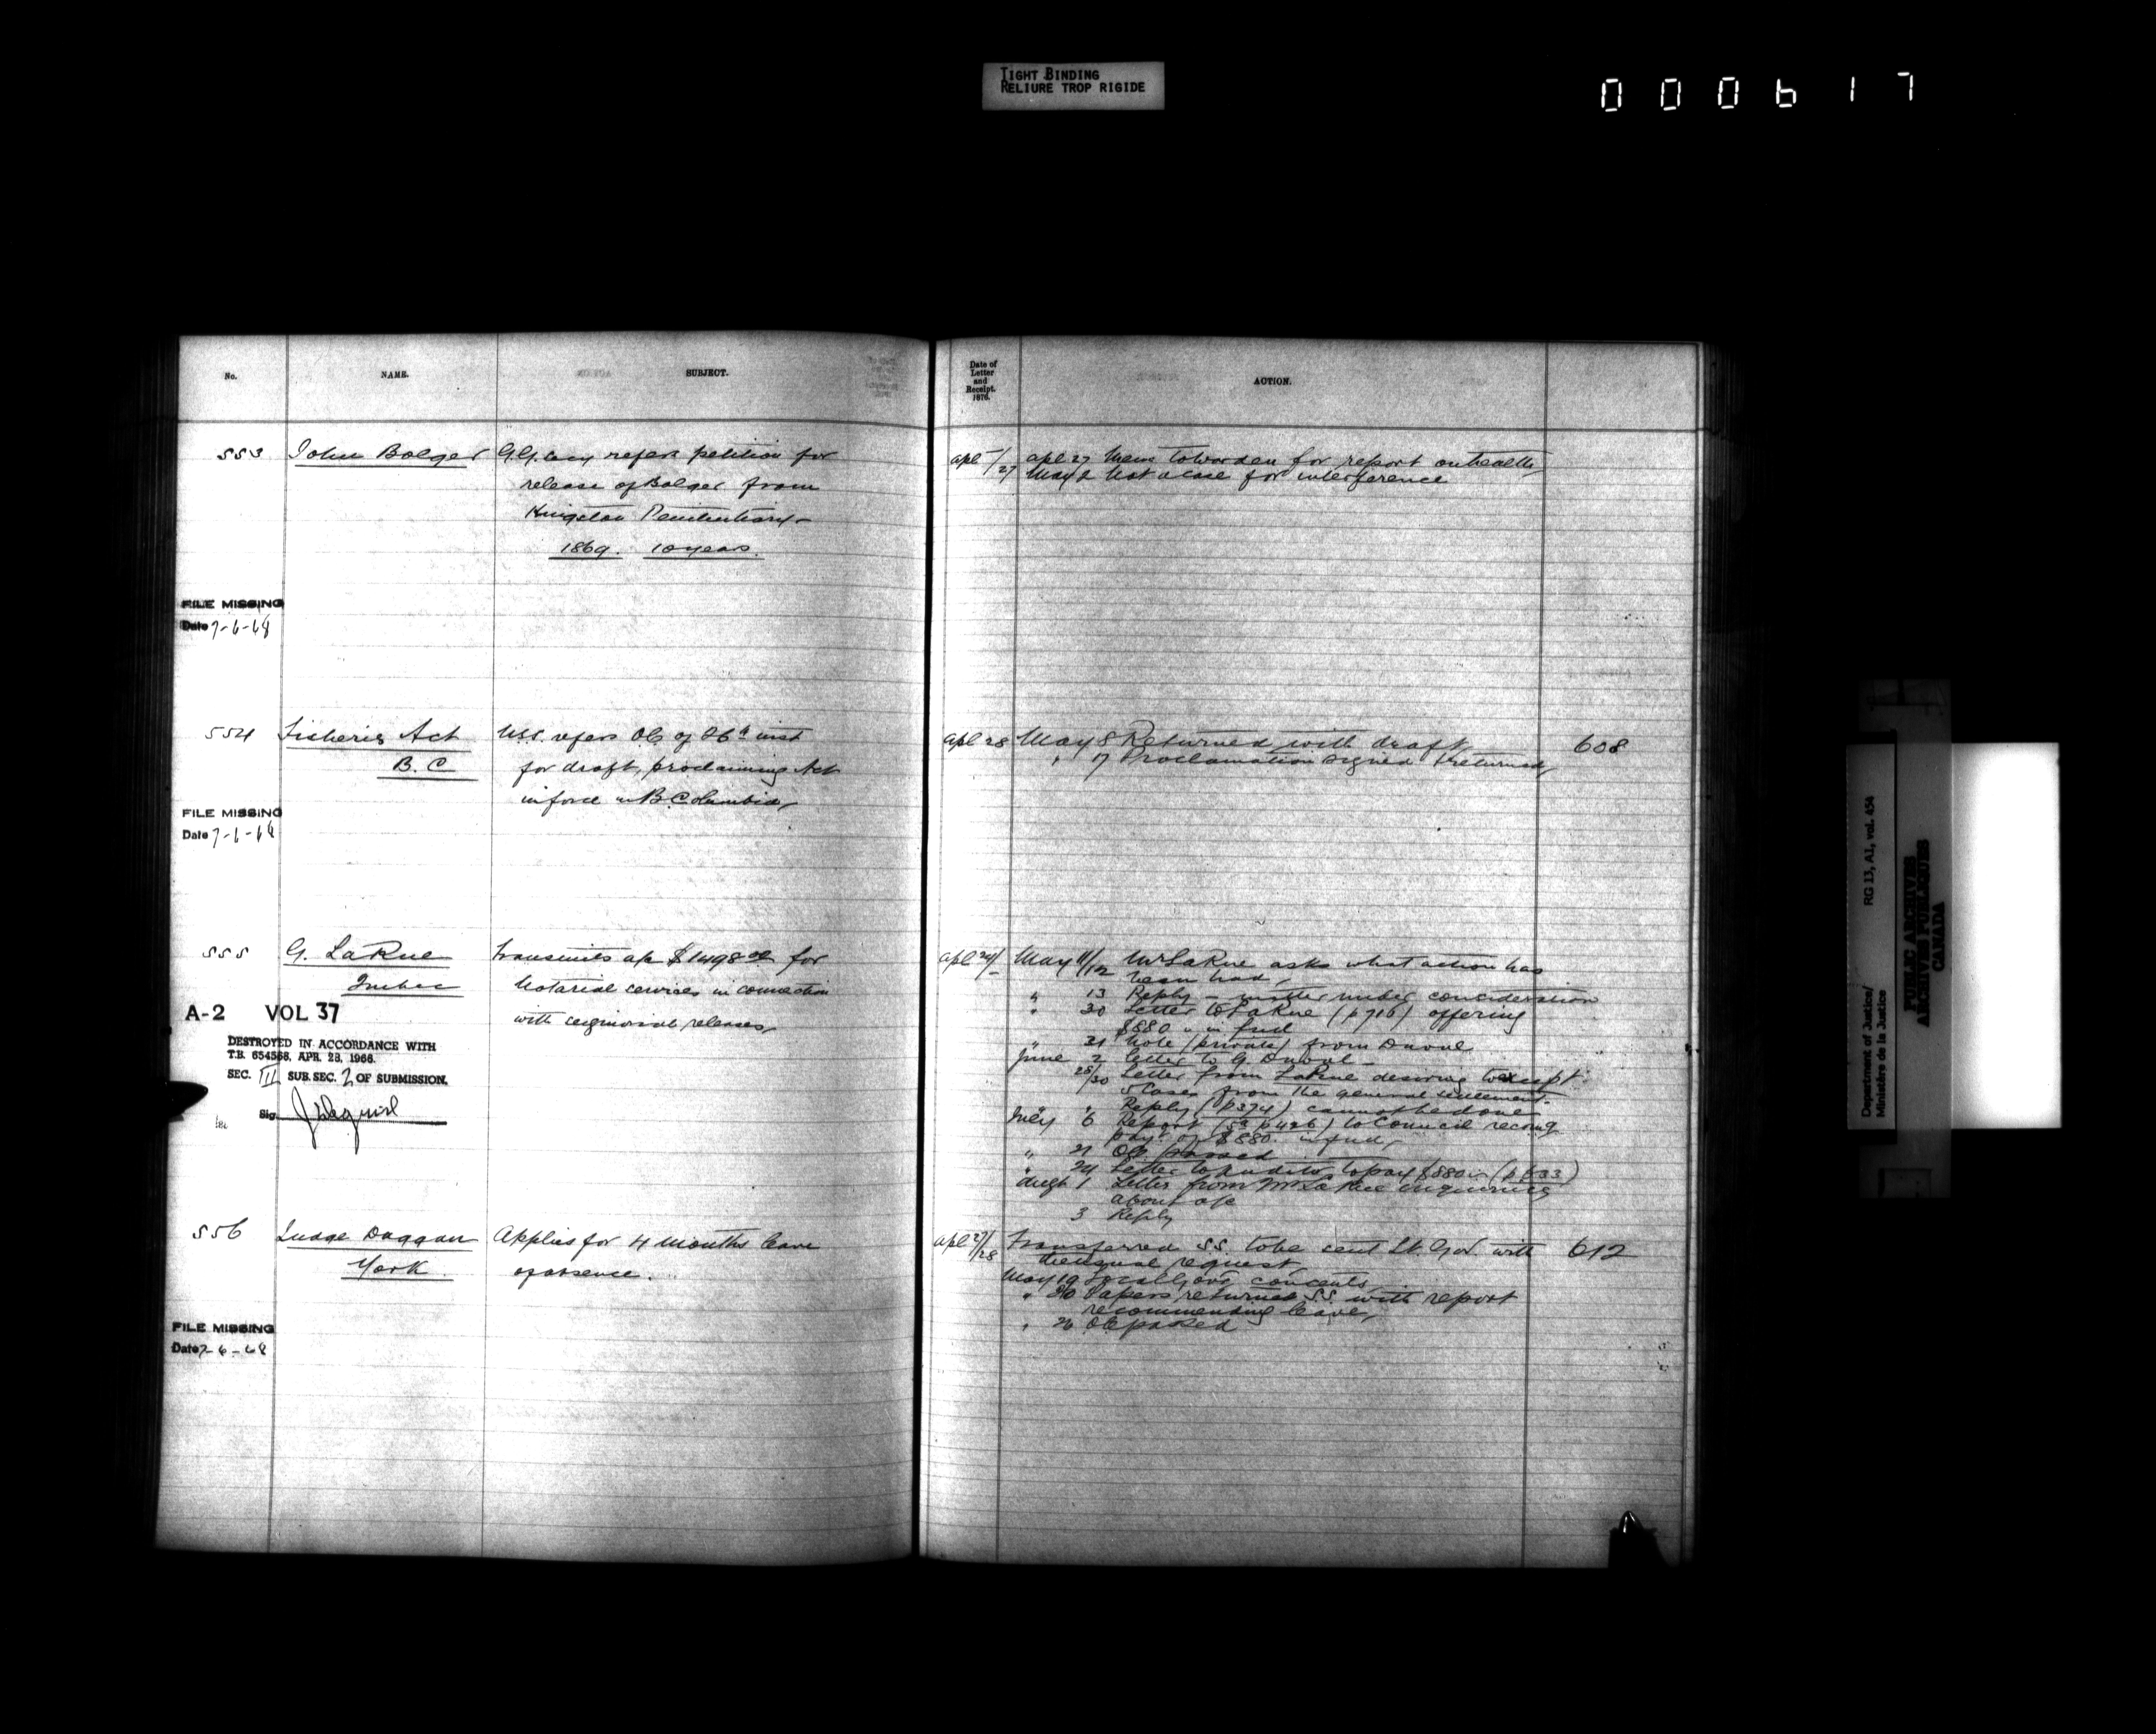 TIGHT BINDING
RELIURE TROP RIGIDE
000617
No.
NAME.
SUBJECT.
553 John Bolger G.G. Secy refers petition for
release of Bolger from
Kingston Penitentiary
1869. 10 years.
FILE MISSING
Date 7-6-68
554 Fisheries Act U.S.S. refers OC of 26th inst
B.C for draft, proclaiming Act
in force in B. Columbia
FILE MISSING
Date 7-6-68
555 G. LaRue Transmits a/c $1498 for
Quebec Notarial services in connection
with seignorial releases
A-2 VOL 37
DESTROYED IN ACCORDANCE WITH
T.B. 654568, APR. 28, 1966.
SEC. III SUB. SEC. 2 OF SUBMISSION.
Sig.
556 Judge Duggan Applies for 4 months leave
York of absence.
FILE MISSING
Date 7-6-68
Date of
Letter
and
Receipt.
1876.
ACTION.
apl /27 apl 27 Memo to Warden for report on health
May 2 Not a case for interference
apl 28 May 8 Returned with draft 608
" 17 Proclamation signed & returned
apl 24/ May 11/12 Mr LaRue asks what action has
been had
" 13 Reply - matter under consideration
" 30 Letter to LaRue (p 716) offering
$880 in full
" 31 Note (private) from Duval
June 2 Letter to G. Duval
28/30 Letter from LaRue desiring to except
5 Cases from the general settlement.
" Reply (p 374) cannot be done
July 6 Report (p 426) to Council recomg
payt of $880 in full
" 21 OC passed
" 24 Letter to Auditor to pay $880 (p 533)
Augt 1 Letter from Mr LaRue enquiring
about a/c
3 Reply
apl 27/28 Transferred S.S. to be sent Lt. Gov. with 612
the usual request
May 19 Local Govt consents
" 20 Papers returned S.S. with report
recommending leave
" 26 OC passed
Department of Justice/
Ministère de la Justice
RG 13, A1, vol. 454
PUBLIC ARCHIVES
ARCHIVES PUBLIQUES
CANADA